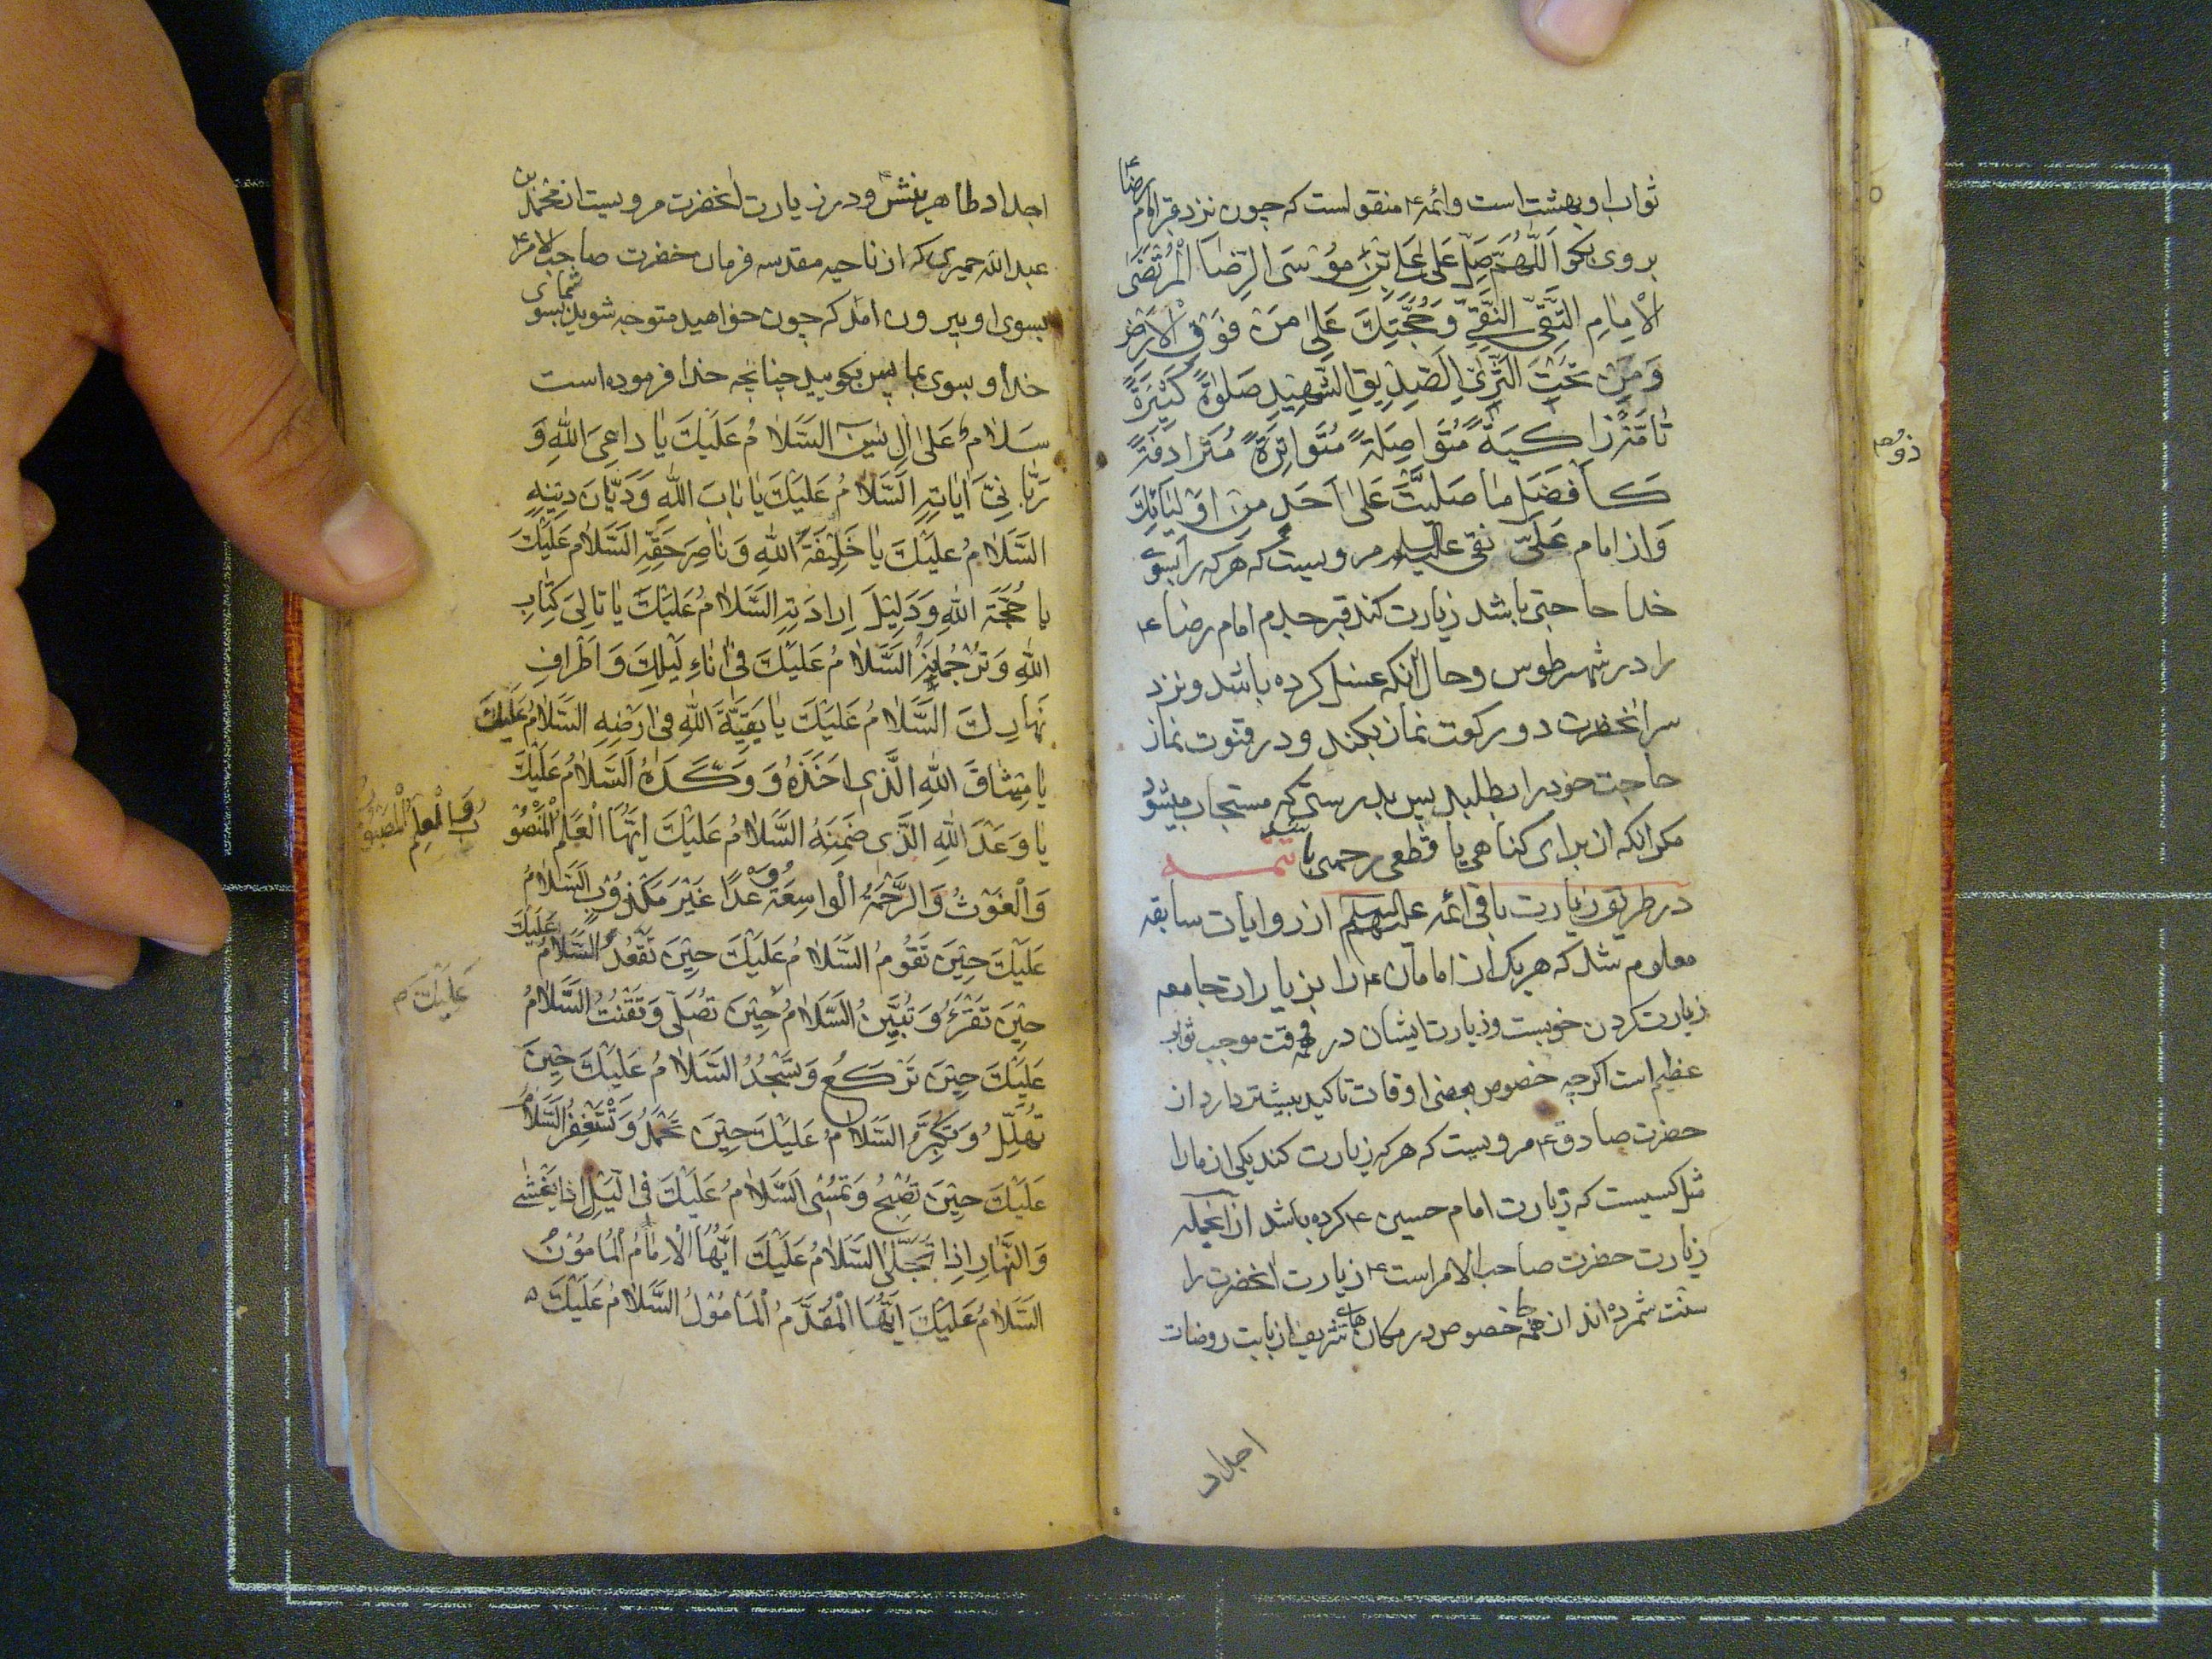 ثواب او بهشت است و ائمه ۴ منقولست که چون نزد قبر امام رضا ۴
بروی بکو اَللّٰهُمَّ صَلِّ عَلٰی عَلِیِّ بْنِ مُوْسَی الرِّضَا الْمُرْتَضٰی
الْاِمَامِ التَّقِیِّ النَّقِیِّ وَ حُجَّتِکَ عَلٰی مَنْ فَوْقَ الْاَرْضِ
وَ مَنْ تَحْتَ الثَّرٰی الصِّدِّیقِ الشَّهِیدِ صَلٰوةً کَثِیْرَةً
تَامَّةً زَاکِیَةً مُتَوَاصِلَةً مُتَوَاتِرَةً مُتَرَادِفَةً
کَاَفْضَلِ مَا صَلَّیْتَ عَلٰی اَحَدٍ مِنْ اَوْلِیَائِکَ
وَ از امام عَلیّ نقی علیه السلم مرویست که هر که را بسوی
خدا حاجتی باشد زیارت کند قبر جدم امام رضا ۴
را در شهر طوس و حال آنکه غسل کرده باشد و نزد
سر انحضرت دو رکعت نماز بکند و در قنوت نماز
حاجت خود را بطلبد پس بدرستی که مستجاب میشود
مکر انکه از برای کناهی یا قطعی رحمی باشد تتمه
در طریق زیارت باقی ائمه علیهم السلم از روایات سابقه
معلوم شد که هر یک از امامان ۴ را بزیارات جامعه
زیارت کردن خوبست و زیارت ایشان در همه وقت موجب ثواب
عظیم است اکرچه خصوص بعضی اوقات تاکید بیشتر دارد از
حضرت صادق ۴ مرویست که هر که زیارت کند یکی از ما را
مثل کسیست که زیارت امام حسین ۴ کرده باشد از آنجمله
زیارت حضرت صاحب الامر است ۴ زیارت انحضرت را
سنت شمرده اند از همه جا خصوص در مکان های شریف از بابت روضات
اجداد
اجداد طاهرینش و در زیارت انحضرت مرویست از محمد بن
عبد الله حمیری که از ناحیه مقدسه فرمان حضرت صاحب الامر ۴
بسوی او بیرون امد که چون خواهید متوجه شوید شما بسوی
خدا و بسوی ما پس بکویید چنانچه خدا فرموده است
سَلَامٌ عَلٰی اٰلِ یٰسٓ السَّلَامُ عَلَیْکَ یَا دَاعِیَ اللهِ وَ
رَبَّانِیَّ اٰیَاتِهِ اَلسَّلَامُ عَلَیْکَ یَا بَابَ اللهِ وَ دَیَّانَ دِیْنِهِ
السَّلَامُ عَلَیْکَ یَا خَلِیْفَةَ اللهِ وَ نَاصِرَ حَقِّهِ السَّلَامُ عَلَیْکَ
یَا حُجَّةَ اللهِ وَ دَلِیْلَ اِرَادَتِهِ السَّلَامُ عَلَیْکَ یَا تَالِیَ کِتَابِ
اللهِ وَ تَرْجُمَانَهُ السَّلَامُ عَلَیْکَ فِیْ اٰنَاءِ لَیْلِکَ وَ اَطْرَافِ
نَهَارِکَ السَّلَامُ عَلَیْکَ یَا بَقِیَّةَ اللهِ فِی اَرْضِهِ السَّلَامُ عَلَیْکَ
یَا مِیْثَاقَ اللهِ الَّذِی اَخَذَهُ وَ وَکَّدَهُ اَلسَّلَامُ عَلَیْکَ
یَا وَعْدَ اللهِ الَّذِی ضَمِنَهُ السَّلَامُ عَلَیْکَ اَیُّهَا الْعَلَمُ الْمَنْصُوْ
وَ الْعِلْمُ الْمَصْبُوْبُ
وَ الْغَوْثُ وَ الرَّحْمَةُ الْوَاسِعَةُ وَعْدًا غَیْرَ مَکْذُوْبٍ السَّلَامُ
عَلَیْکَ حِیْنَ تَقُوْمُ السَّلَامُ عَلَیْکَ حِیْنَ تَقْعُدُ السَّلَامُ عَلَیْکَ
حِیْنَ تَقْرَءُ وَ تُبَیِّنُ السَّلَامُ حِیْنَ تُصَلِّی وَ تَقْنُتُ السَّلَامُ
عَلَیْکَ
عَلَیْکَ حِیْنَ تَرْکَعُ وَ تَسْجُدُ السَّلَامُ عَلَیْکَ حِیْنَ
تُهَلِّلُ وَ تُکَبِّرُ السَّلَامُ عَلَیْکَ حِیْنَ تَحْمَدُ وَ تَسْتَغْفِرُ السَّلَامُ
عَلَیْکَ حِیْنَ تُصْبِحُ وَ تُمْسِی السَّلَامُ عَلَیْکَ فِی الَّیْلِ اِذَا یَغْشٰی
وَ النَّهَارِ اِذَا تَجَلّٰی السَّلَامُ عَلَیْکَ اَیُّهَا الْاِمَامُ الْمَامُوْنُ
السَّلَامُ عَلَیْکَ اَیُّهَا الْمُقَدَّمُ الْمَامُوْلُ السَّلَامُ عَلَیْکَ